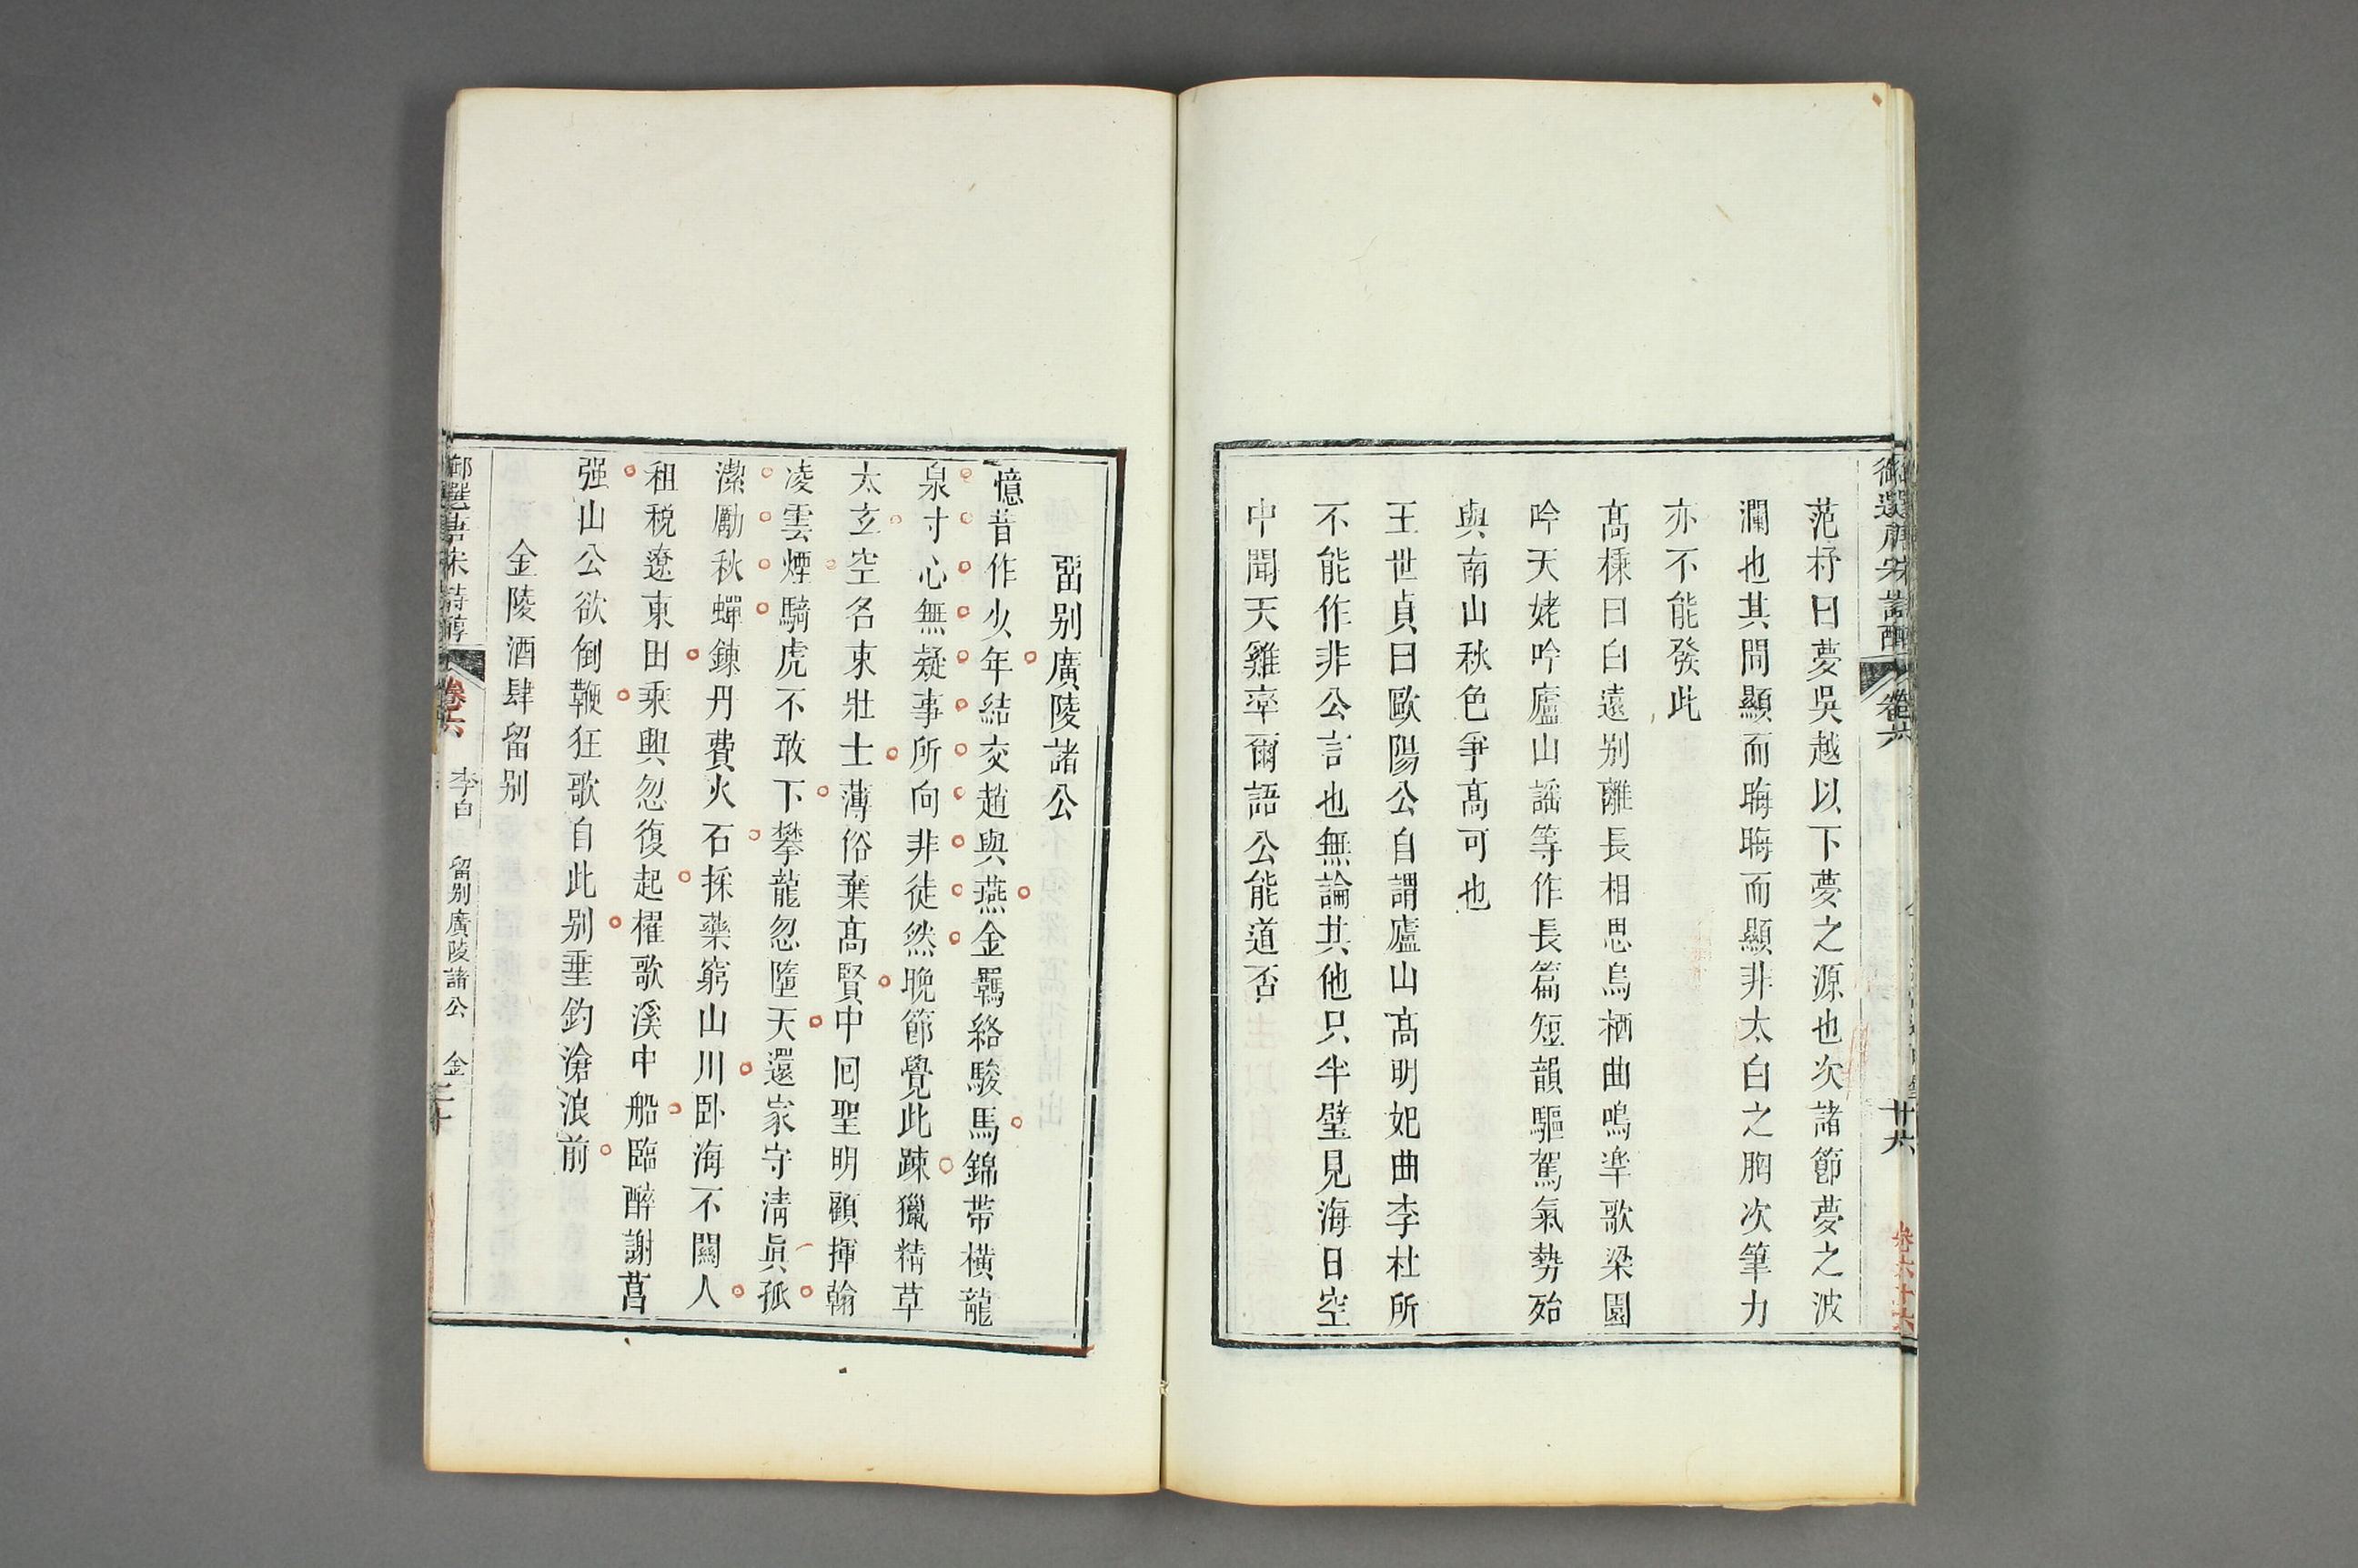 御選唐宋詩醇 卷六 廿六
卷六十六
范梈曰夢吳越以下夢之源也次諸節夢之波
瀾也其間顯而晦晦而顯非太白之胸次筆力
亦不能發此
髙棅曰白遠别離長相思烏栖曲鳴臯歌梁園
吟天姥吟廬山謡等作長篇短韻驅駕氣勢殆
與南山秋色爭髙可也
王世貞曰歐陽公自謂廬山髙明妃曲李杜所
不能作非公言也無論其他只半壁見海日空
中聞天雞率爾語公能道否
留别廣陵諸公
憶昔作少年結交趙與燕金羈絡駿馬錦帶橫龍
泉寸心無疑事所向非徒然晚節覺此踈獵精草
太玄空名束壯士薄俗棄髙賢中回聖明顧揮翰
凌雲煙騎虎不敢下攀龍忽墮天還家守淸眞孤
潔勵秋蟬鍊丹費火石採藥窮山川卧海不關人
租税遼東田乘興忽復起櫂歌溪中船臨醉謝葛
强山公欲倒鞭狂歌自此别垂釣滄浪前
金陵酒肆留别
御選唐宋詩醇 卷六 李白 留别廣陵諸公 金